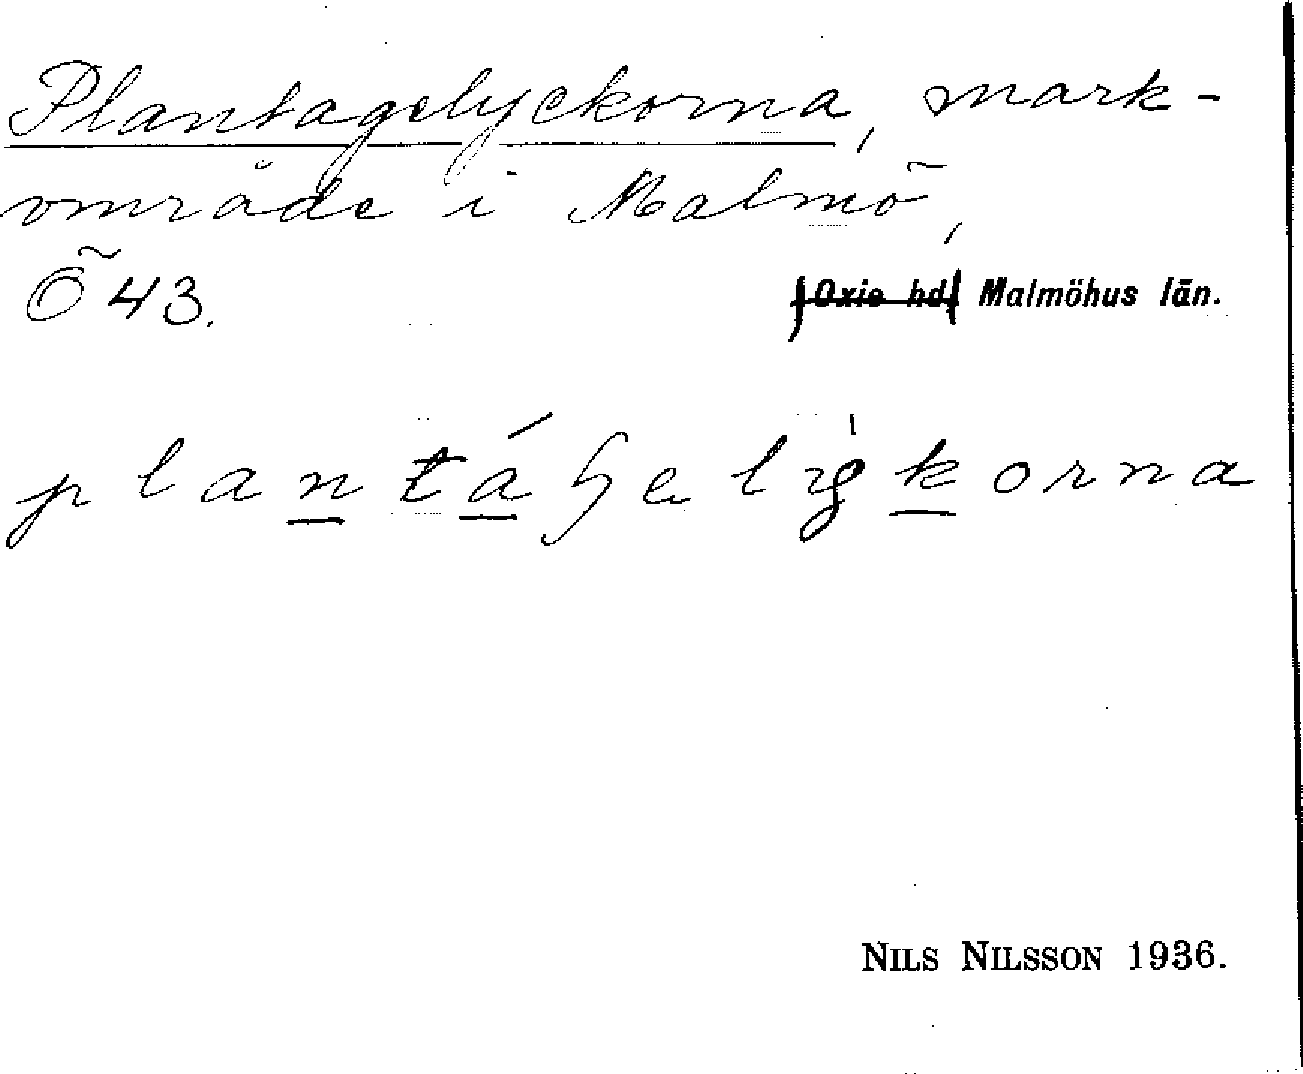 Plantagelyckorna, mark-
område i Malmö,
Ö 43. Oxie hd Malmöhus län.
NILS NILSSON 1936.